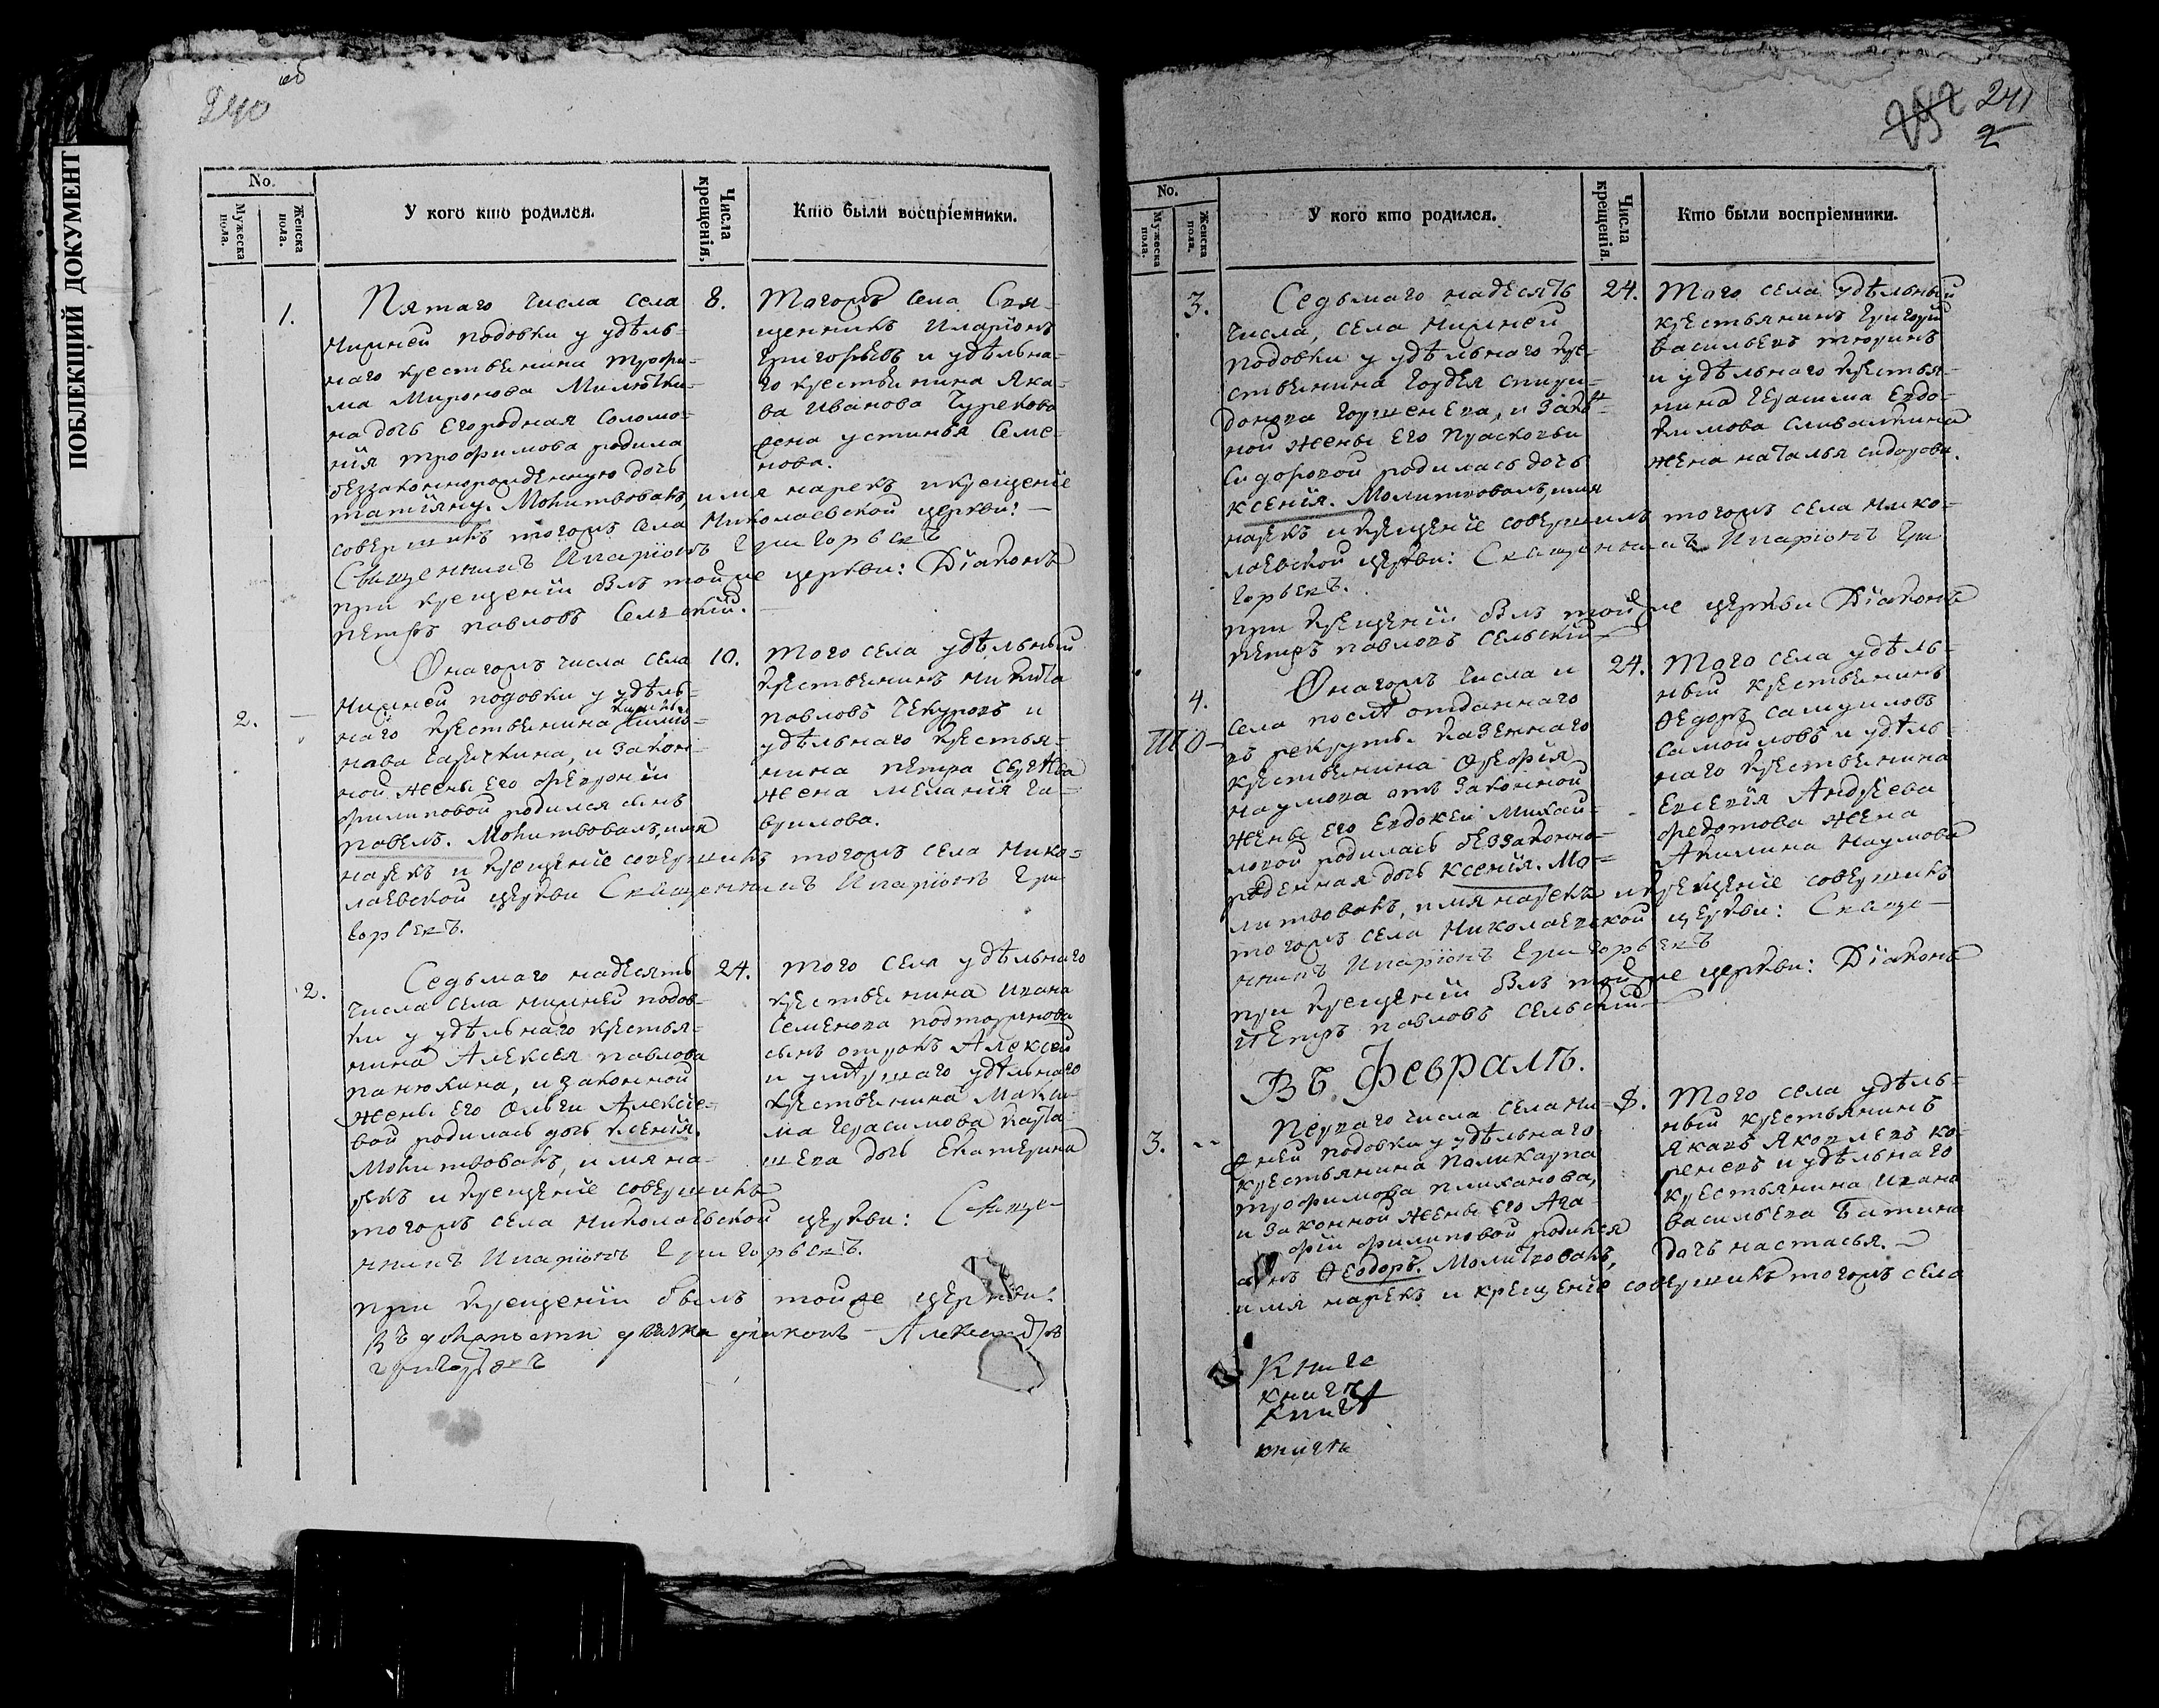 ПОБЛЕКШИЙ ДОКУМЕНТ
240 об
No.
Мужеска пола.
Женска пола.
У кого кто родился.
Числа крещенія.
Кто были воспріемники.
1.
Пятаго числа села
Нижней подовки у удѣль-
наго крестьянина Трофи-
ма Миронова Милютки-
на дочь Егородная Соломо-
нія Трофимова родила
беззаконнорожденную дочь
татіяну. Молитвовалъ, имя нарекъ и крещеніе
совершилъ тогожъ села Николаевской церкви:
Священникъ Иларіонъ Григорьевъ
при крещеніи былъ тойже церкви: Діаконъ
петръ павловъ Сельскій.
8.
Тогожъ села Свя-
щенникъ Иларіонъ
Григорьевъ и удѣльна-
го крестьянина Яко-
ва Иванова Чурекова
жена устинья Семе-
нова.
2.
Онагожъ числа села
Нижней подовки у удѣль-
наго крестьянина
и закон-
ной жены его февроніи
филиповой родился сынъ
павелъ. Молитвовалъ, имя
нарекъ и крещеніе совершилъ тогожъ села Нико-
лаевской церкви Священникъ Иларіонъ Гри-
горьевъ.
10.
того села удѣльный
крестьянинъ Никита
павловъ Чекуровъ и
удѣльнаго крестья-
нина петра Сергѣева
жена меланія га-
врилова.
2.
Седьмаго надесять
числа села нижней подов-
ки у удѣльнаго крестья-
нина Алексея павлова
панюкина, и законной
жены его Ольги Алексее-
вой родилась дочь ксенія.
Молитвовалъ, имя на-
рекъ и крещеніе совершилъ
тогожъ села николаевской церкви: Свяще-
нникъ Иларіонъ Григорьевъ.
при крещеніи былъ тойже церкви:
въ должности дьячка Александръ
григорьевъ
24.
того села удѣльнаго
крестьянина Ивана
Семенова
сынъ отрокъ Алексей
и умершаго удѣльнаго
крестьянина Макси-
ма Герасимова
дочь Екатерина
241
2
No.
Мужеска пола.
Женска пола.
У кого кто родился.
Числа крещенія.
Кто были воспріемники.
3.
Седьмаго надесять
числа, села нижней
подовки у удѣльнаго кре-
стьянина Гордея спири-
донова Горшенева, и закон-
ной жены его прасковьи
Сидоровой родилась дочь
ксенія. Молитвовалъ, имя
нарекъ и крещеніе совершилъ тогожъ села нико-
лаевской церкви: Священникъ Иларіонъ Гри-
горьевъ.
при крещеніи былъ тойже церкви Діаконъ
петръ павловъ сельскій
24.
Того села удѣльный
крестьянинъ Григорій
васильевъ тюринъ
и удѣльнаго крестья-
нина Герасима Евдо-
кимова
жена наталья сидорова.
4.
Онагожъ числа и
села послѣ отданнаго
въ рекруты казеннаго
крестьянина
наумова отъ законной
жены его Евдокеи Михай-
ловой родилась беззаконно-
рожденная дочь ксенія. Мо-
литвовалъ, имя нарекъ и крещеніе совершилъ
тогожъ села николаевской церкви: Священ-
никъ Иларіонъ Григорьевъ
при крещеніи былъ тойже церкви: Діаконъ
петръ павловъ сельскій
24.
Того села удѣль-
ный крестьянинъ
Ѳедоръ самуиловъ
самойловъ и удѣль-
наго крестьянина
Евсевія Андреева
федотова жена
Акилина Наумова
Въ Февралѣ.
3.
Перваго числа села ни-
жней подовки у удѣльнаго
крестьянина поликарпа
трофимова плиханова,
и законной жены его Ага-
фіи филиповой родился
сынъ Ѳеодоръ. Молитвовалъ,
имя нарекъ и крещеніе совершилъ тогожъ села
8.
Того села удѣль-
ный крестьянинъ
Яковъ Яковлевъ ко-
реневъ и удѣльнаго
крестьянина ивана
васильева батина
дочь настасья.
Книга
книга
книга
книга